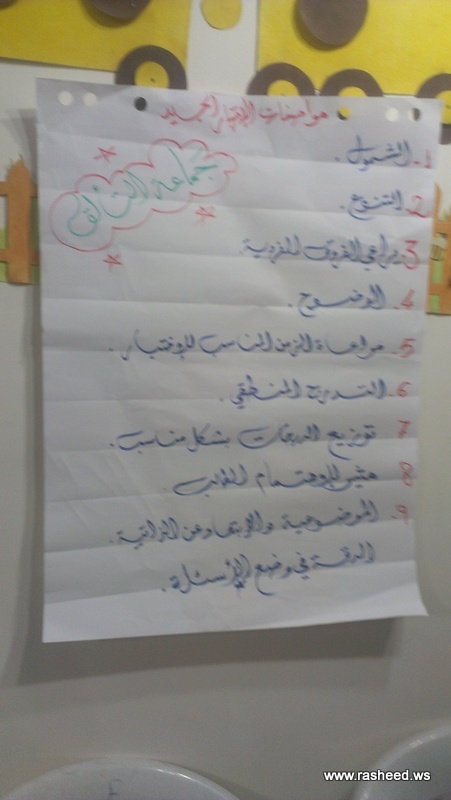 مواصفات الاختبار الجيد
جماعة التآلف
1. الشمول.
2. التنوع.
3. يراعي الفروق الفردية.
4. الوضوح.
5. مراعاة الزمن المناسب للاختبار.
6. التدرج المنطقي.
7 توزيع الدرجات بشكل مناسب.
8 مثير لاهتمام الطالب
9. الموضوعية والابتعاد عن الذاتية.
الدقة في وضع الأسئلة.
www.rasheed.ws